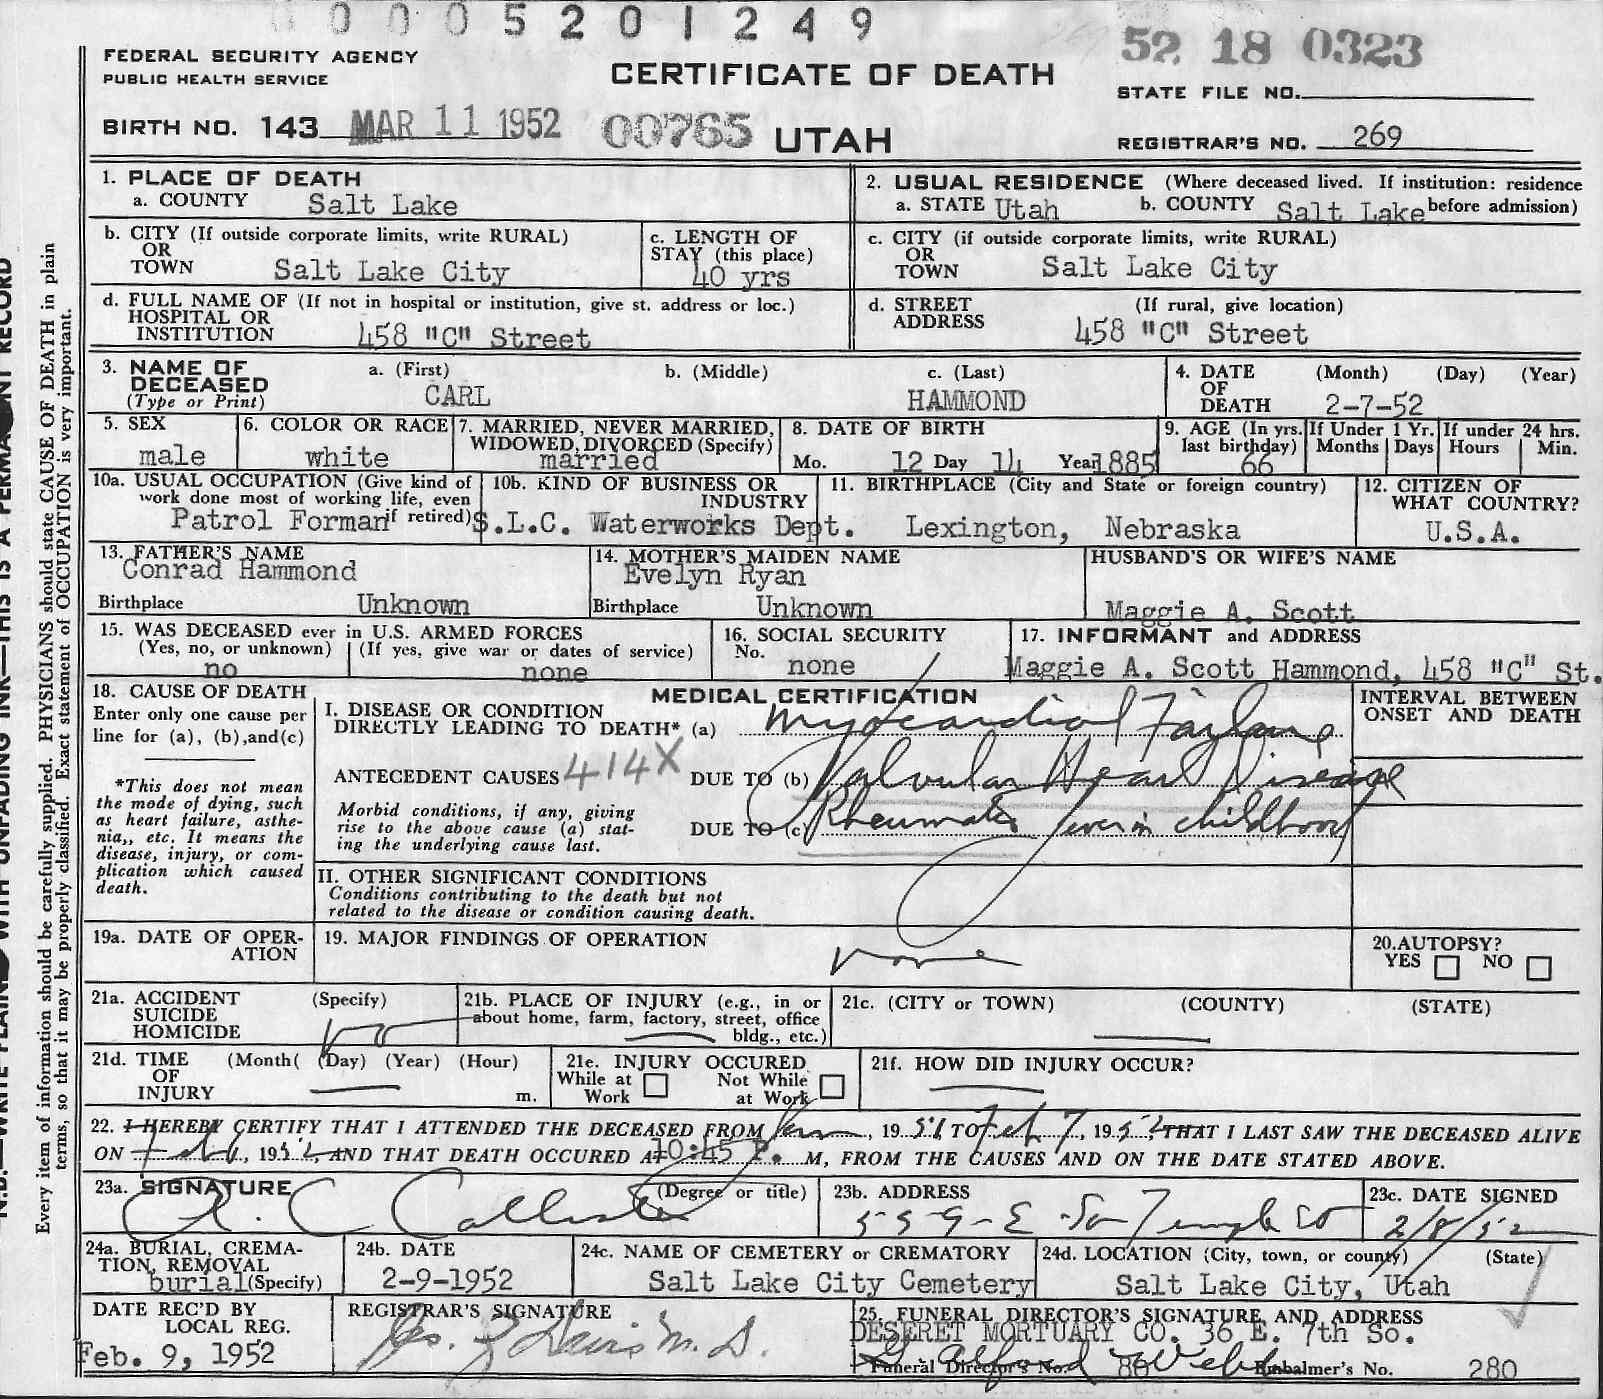 0005201249
52 18 0323
FEDERAL SECURITY AGENCY
PUBLIC HEALTH SERVICE
CERTIFICATE OF DEATH
STATE FILE NO.
BIRTH NO. 143 MAR 11 1952 00765 UTAH
REGISTRAR'S NO. 269
1. PLACE OF DEATH
a. COUNTY Salt Lake
2. USUAL RESIDENCE (Where deceased lived. If institution: residence before admission)
a. STATE Utah b. COUNTY Salt Lake
b. CITY (If outside corporate limits, write RURAL)
OR
TOWN Salt Lake City
c. LENGTH OF
STAY (this place)
40 yrs
c. CITY (if outside corporate limits, write RURAL)
OR
TOWN Salt Lake City
d. FULL NAME OF (If not in hospital or institution, give st. address or loc.)
HOSPITAL OR
INSTITUTION 458 "C" Street
d. STREET (If rural, give location)
ADDRESS 458 "C" Street
3. NAME OF
DECEASED
(Type or Print)
a. (First) b. (Middle) c. (Last)
CARL HAMMOND
4. DATE (Month) (Day) (Year)
OF
DEATH 2-7-52
5. SEX
male
6. COLOR OR RACE
white
7. MARRIED, NEVER MARRIED,
WIDOWED, DIVORCED (Specify)
married
8. DATE OF BIRTH
Mo. 12 Day 14 Year 1885
9. AGE (In yrs.
last birthday)
66
If Under 1 Yr.
Months Days
If under 24 hrs.
Hours Min.
10a. USUAL OCCUPATION (Give kind of
work done most of working life, even
if retired)
Patrol Forman
10b. KIND OF BUSINESS OR
INDUSTRY
S.L.C. Waterworks Dept.
11. BIRTHPLACE (City and State or foreign country)
Lexington, Nebraska
12. CITIZEN OF
WHAT COUNTRY?
U.S.A.
13. FATHER'S NAME
Conrad Hammond
Birthplace Unknown
14. MOTHER'S MAIDEN NAME
Evelyn Ryan
Birthplace Unknown
HUSBAND'S OR WIFE'S NAME
Maggie A. Scott
15. WAS DECEASED ever in U.S. ARMED FORCES
(Yes, no, or unknown) (If yes, give war or dates of service)
no none
16. SOCIAL SECURITY
No. none
17. INFORMANT and ADDRESS
Maggie A. Scott Hammond, 458 "C" St.
18. CAUSE OF DEATH
Enter only one cause per
line for (a), (b), and (c)
*This does not mean
the mode of dying, such
as heart failure, asthe-
nia,, etc. It means the
disease, injury, or com-
plication which caused
death.
MEDICAL CERTIFICATION
I. DISEASE OR CONDITION
DIRECTLY LEADING TO DEATH* (a) Myocardial Failure
ANTECEDENT CAUSES 414X DUE TO (b) Valvular Heart Disease
Morbid conditions, if any, giving
rise to the above cause (a) stat-
ing the underlying cause last.
DUE TO (c) Rheumatic fever in childhood
INTERVAL BETWEEN
ONSET AND DEATH
II. OTHER SIGNIFICANT CONDITIONS
Conditions contributing to the death but not
related to the disease or condition causing death.
19a. DATE OF OPER-
ATION
19. MAJOR FINDINGS OF OPERATION
none
20. AUTOPSY?
YES NO
21a. ACCIDENT (Specify)
SUICIDE
HOMICIDE
no
21b. PLACE OF INJURY (e.g., in or
about home, farm, factory, street, office
bldg., etc.)
21c. (CITY or TOWN) (COUNTY) (STATE)
21d. TIME (Month( (Day) (Year) (Hour)
OF
INJURY m.
21e. INJURY OCCURED
While at Work Not While at Work
21f. HOW DID INJURY OCCUR?
22. I HEREBY CERTIFY THAT I ATTENDED THE DECEASED FROM Jan, 1951 TO Feb 7, 1952 THAT I LAST SAW THE DECEASED ALIVE
ON Feb 6, 1952, AND THAT DEATH OCCURED AT 10:45 P. M, FROM THE CAUSES AND ON THE DATE STATED ABOVE.
23a. SIGNATURE (Degree or title)
A. C. Callister
23b. ADDRESS
559-E So Temple St
23c. DATE SIGNED
2/8/52
24a. BURIAL, CREMA-
TION, REMOVAL
burial (Specify)
24b. DATE
2-9-1952
24c. NAME OF CEMETERY or CREMATORY
Salt Lake City Cemetery
24d. LOCATION (City, town, or county) (State)
Salt Lake City, Utah
DATE REC'D BY
LOCAL REG.
Feb. 9, 1952
REGISTRAR'S SIGNATURE
25. FUNERAL DIRECTOR'S SIGNATURE AND ADDRESS
DESERET MORTUARY CO. 36 E. 7th So.
Funeral Director's No. 80 Embalmer's No. 280
Every item of information should be carefully supplied. PHYSICIANS should state CAUSE OF DEATH in plain
terms, so that it may be properly classified. Exact statement of OCCUPATION is very important.